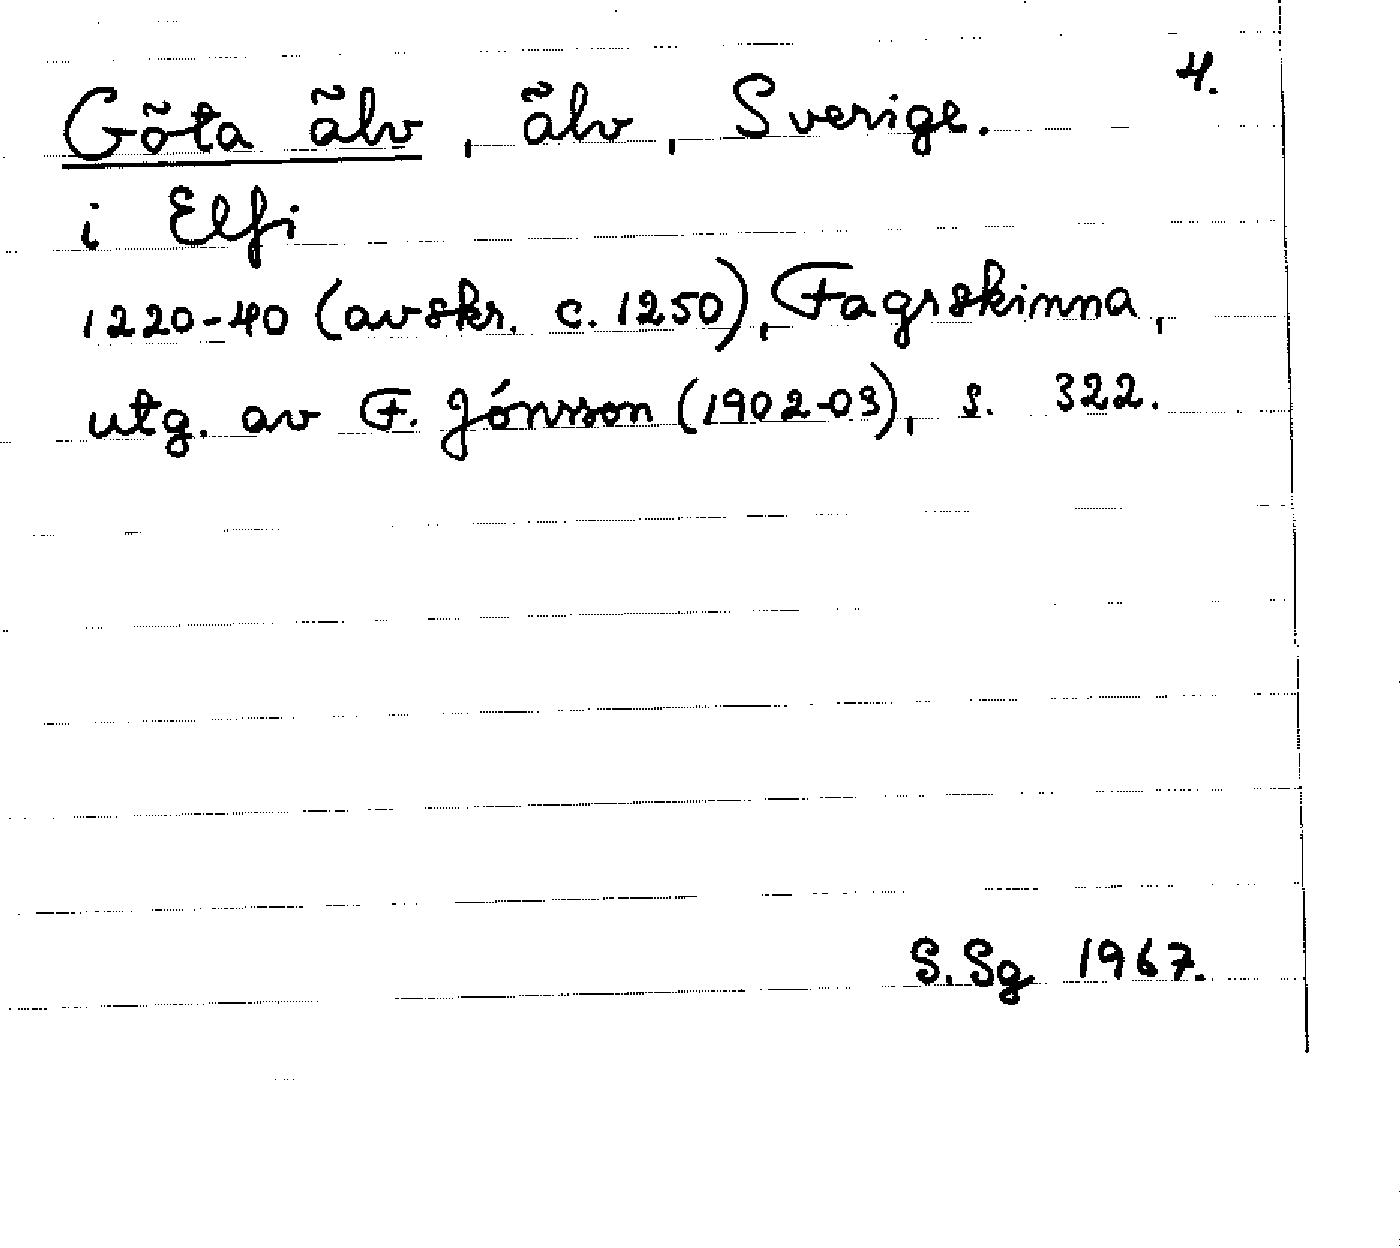 4.
Göta älv, älv, Sverige.
i Elfi
1220-40 (avskr. c. 1250), Fagrskinna,
utg. av F. Jónsson (1902-03), s. 322.
S. Sg 1967.